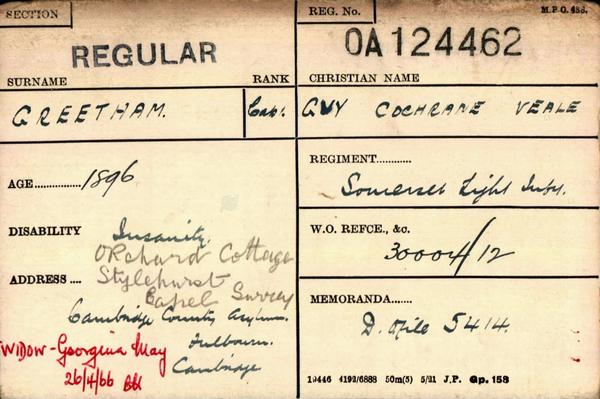 SECTION
REGULAR
REG. No.
M.P.O. 488.
OA124462
SURNAME
RANK
CHRISTIAN NAME
GREETHAM.
Capt.
GUY COCHRANE VEALE
AGE 1896
REGIMENT
Somerset Light Infy.
DISABILITY Insanity.
W.O. REFCE., &c.
30004/12
ADDRESS Orchard Cottage
Stylehurst
Capel Surrey
Cambridge County Asylum.
Fulbourn.
Cambridge
WIDOW - Georgina May
26/4/66
MEMORANDA
D. File 5414.
10446 4192/6888 50m(5) 5/21 J.P. Gp. 158